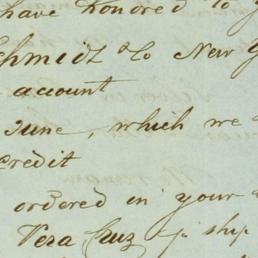 have honored to y
chmidt & Co New Y
account
June, which we
credit
ordered in your
Vera Cruz p ship